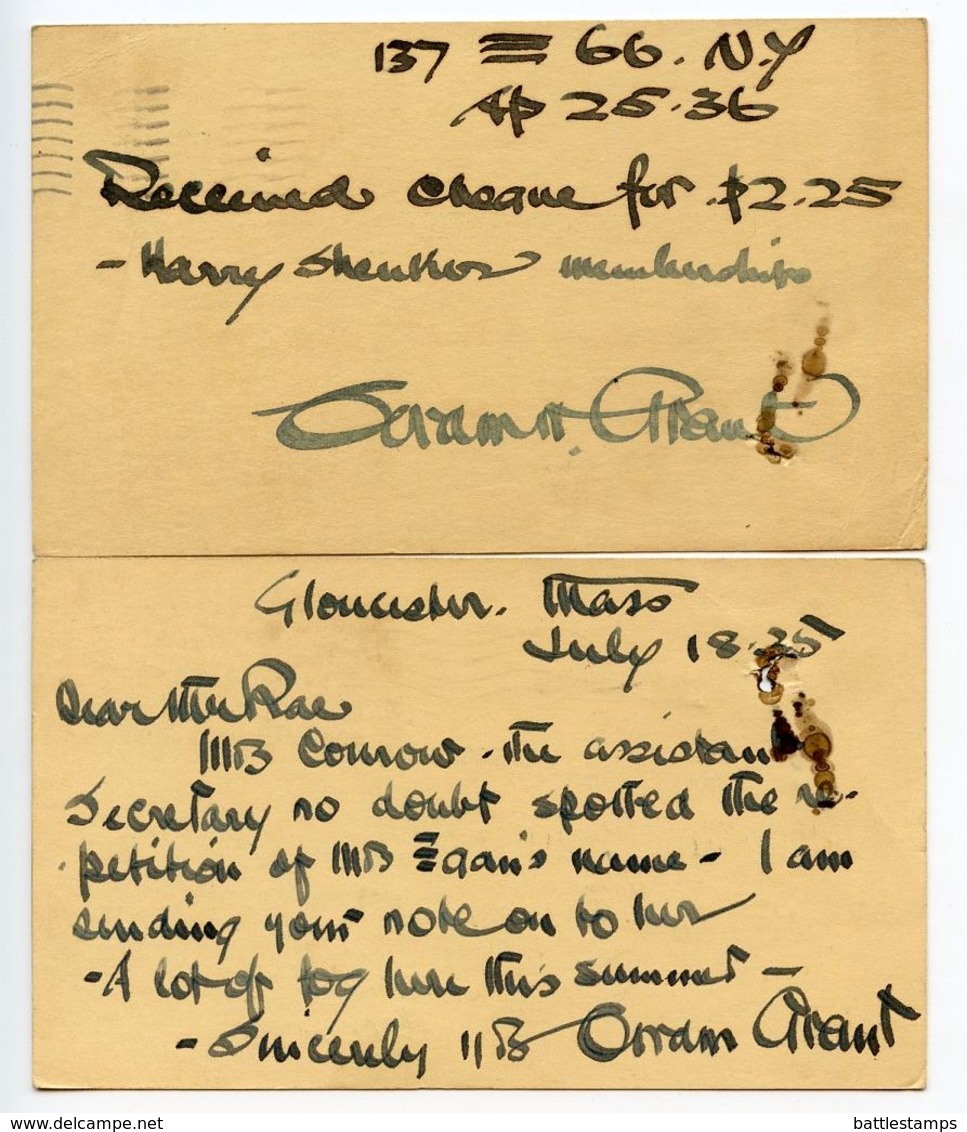 137 E 66. N.Y
Ap 25.36
Received cheque for $2.25
- Harry Shenker membership
Gordon Grant
Gloucester. Mass
July 18.35
Dear Mr Rae
Mrs Conrow - the assistant
Secretary no doubt spotted the re-
petition of Mrs Egan's name - I am
sending your note on to her
- A lot of fog here this summer -
- Sincerely Mrs Gordon Grant
www.delcampe.net
battlestamps